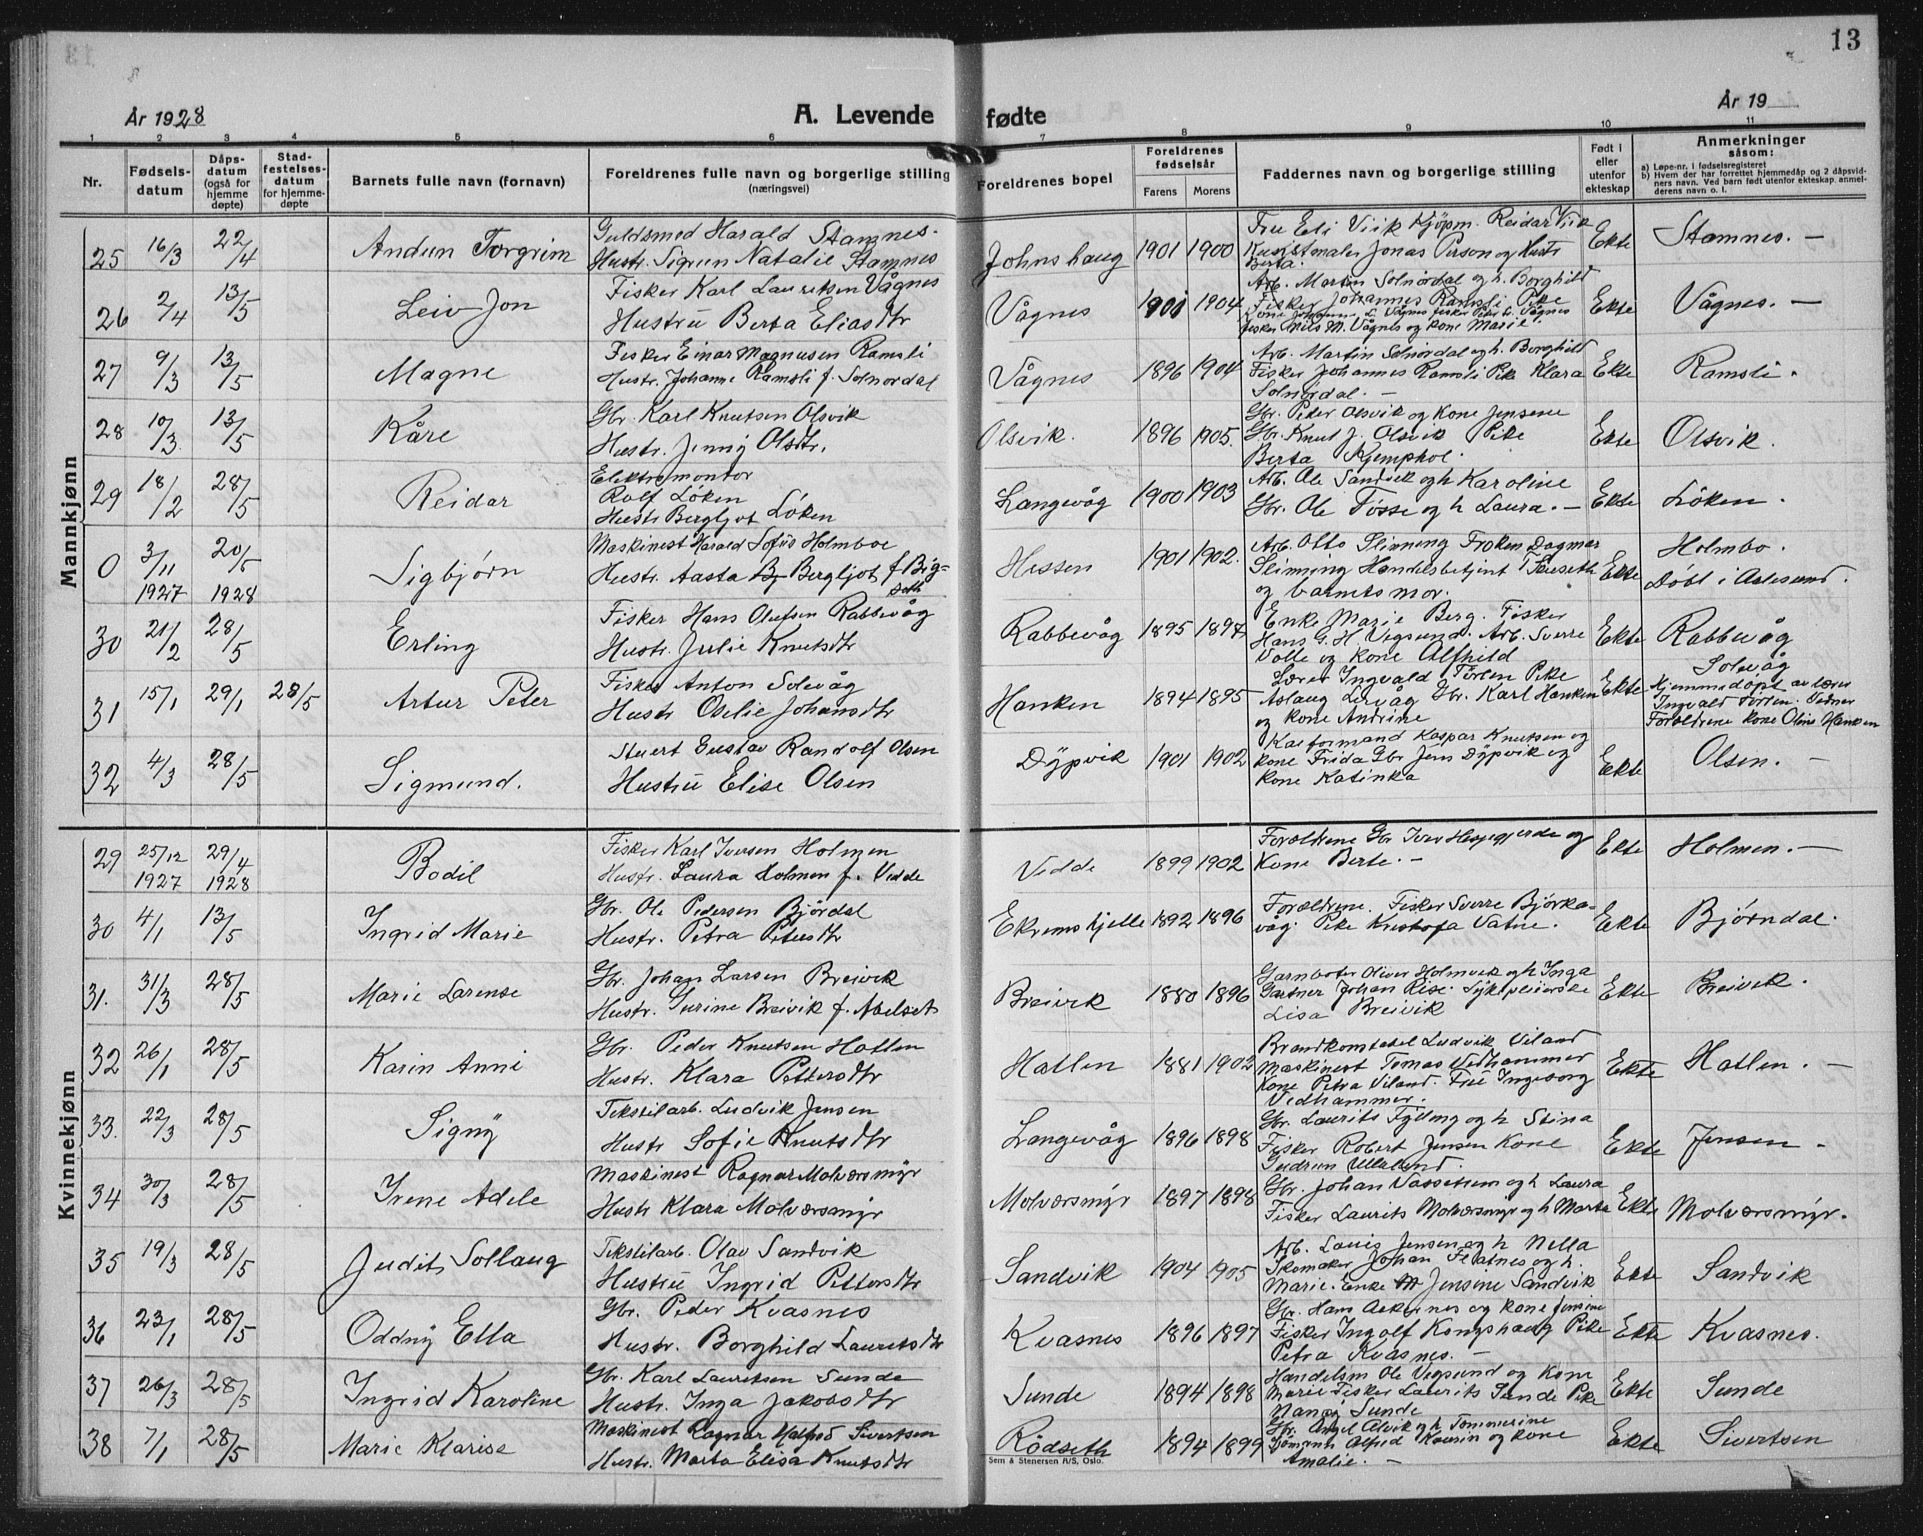 13
År 1928
A. Levende fødte
År 19
1 2 3 4 5 6 7 8 9 10 11
Nr.
Fødsels-
datum
Dåps-
datum
(også for
hjemme
døpte)
Stad-
festelses-
datum
for hjemme-
døpte
Barnets fulle navn (fornavn)
Foreldrenes fulle navn og borgerlige stilling
(næringsvei)
Foreldrenes bopel
Foreldrenes
fødselsår
Farens Morens
Faddernes navn og borgerlige stilling
Født i
eller
utenfor
ekteskap
Anmerkninger
såsom:
a) Løpe-nr. i fødselsregisteret
b) Hvem der har forrettet hjemmedåp og 2 dåpsvid-
ners navn. Ved barn født utenfor ekteskap anmel-
derens navn o. l.
Mannkjønn
25 16/3 22/4 Torgrim
Guldsmed Harald Stamnes.
Hustr. Sigrun Natalie Stamnes
Johnshaug 1901 1900
Fru Eli Viik Kjøpm. Reidar Viik
Kunstmaler Jonas Person og Hustr
Berta.
Ekte Stamnes. —
26 2/4 13/5 Leiv Jon
Fisker Karl Lauritsen Vågnes
Hustru Berta Eliasdtr
Vågnes 1901 1904
Arb. Martin Solnørdal og h. Borghild
Fisker Johannes Ramsli Pike
fisker Nils M. Vågnes og kone Marie.
Ekte Vågnes. —
27 9/3 13/5 Magne
Fisker Einar Magnusen Ramsli
Hustr. Johanne Ramsli f. Solnørdal
Vågnes 1896 1904
Arb. Martin Solnørdal og h. Borghild
Fisker Johannes Ramsli Pike Klara
Solnørdal. —
Ekte Ramsli.
28 10/3 13/5 Kåre
Gbr. Karl Knutsen Olsvik
Hustr. Jenny Olsdtr.
Olsvik. 1896 1905.
Gbr. Peder Olsvik og Kone Jensene
Gbr. Knut J. Olsvik Pike
Berta Kjemphol.
Ekte Olsvik.
29 18/2 28/5 Reidar
Elektromontør
Rolf Løken
Hustr Bergljot Løken
Langevåg 1900 1903
Arb. Ole Sandvik og h Karoline
Gbr. Ole Fosse og h Laura. —
Ekte Løken.
0 3/11 1927 20/5 1928 Sigbjørn
Maskinest Harald Sofus Holmboe
Hustr. Aasta Bergljot f Big-
seth
Hessen 1901 1902.
Arb. Otto Slinning Frøken Dagmar
Slinning Handelsbetjent T
og barnets mor.
Ekte Holmbo.
Døbt i Aalesund.
30 21/2 28/5 Erling
Fisker Hans Olufsen Rabbevåg
Hustr. Julie Knutsdtr
Rabbevåg 1895 1897
Enke Marie Berg. Fisker
Hans G. H Vegsund. Arb. Sverre
Volle og kone Alfhild
Ekte Rabbevåg
31 15/1 29/1 28/5 Artur Peter
Fisker Anton Solevåg
Hustr Otelie Johansdtr
Hanken 1894 1895
Lærer Ingvald Tørlen Pike
Aslaug Lervåg Gbr. Karl Hanken
og kone Andrine
Ekte Solevåg
Hjemmedøpt av lærer
Ingvald Tørlen. Vidner
Foreldrene Kone Oline Hanken
32 4/3 28/5 Sigmund.
Stuert Gustav Randolf Olsen
Hustru Elise Olsen
Dypvik 1901 1902
Kaiformand Kaspar Knutsen og
kone Frida Gbr Jens Dypvik og
kone Katinka
Ekte Olsen. —
Kvinnekjønn
29 25/12 1927 29/4 1928 Bodil
Fisker Karl Iversen Holmen
Hustr. Laura Holmen f. Vedde
Vedde 1899 1902
Foreldrene Gbr Iver Hessgjerde og
Kone Berte. —
Ekte Holmen. —
30 4/1 13/5 Ingrid Marie
Gbr. Ole Pedersen Bjørdal
Hustr. Petra Petersdtr
Ekremskjelle 1892 1896
Foreldrene. Fisker Sverre Bjørka-
våg. Pike Kristofa Vatne.
Ekte Bjørndal.
31. 31/3 28/5 Marie Larense
Gbr. Johan Larsen Breivik
Hustr. Surine Breivik f. Abelset
Breivik 1880 1896
Garnbøter Oliver Holmvik og h Inga
Gartner Johan Rise. Sykepleierske
Lisa Breivik
Ekte Breivik.
32 26/1 28/5 Karin Anni
Gbr. Peder Knutsen Hatlen
Hustr. Klara Pettersdtr
Hatlen 1881 1902
Brandkonstabel Ludvik Viland
Maskinest Tomas Vedhammer
Kone Petra Viland. Fru Ingeborg
Vedhammer.
Ekte Hatlen. —
33. 22/3 28/5 Signy
Tekstilarb. Ludvik Jensen
Hustr Sofie Knutsdtr
Langevåg 1896 1898
Gbr. Laurits Fylling og h Stina
Fisker Robert Jensen Kone
Gudrun Ullalund.
Ekte Jensen -
34 30/3 28/5 Irene Adele
Maskinest Ragnar Molværsmyr
Hustr Klara Molværsmyr
Molværsmyr 1897 1898
Gbr. Johan Vassetrem og h Laura
Fisker Laurits Molværsmyr og h Marta
Ekte Molværsmyr.
35 19/3 28/5 Judit Sollaug
Tekstilarb. Olav Sandvik
Hustru Ingrid Pettersdtr
Sandvik 1904 1905
Arb. Louis Jensen og h Nella
Skomaker Johan Flatnes og h.
Marie. Enke Jensene Sandvik
Ekte Sandvik
36 23/1 28/5 Oddny Ella
Gbr. Peder Kvasnes
Hustr. Borghild Lauritsdtr
Kvasnes 1896 1897
Gbr. Hans Aakernes og kone Jensine
Fisker Ingolf Kongshaug Pike
Petra Kvasnes. —
Ekte Kvasnes.
37 26/3 28/5 Ingrid Karoline
Gbr. Karl Lauritsen Sunde
Hustr. Inga Jakobsdtr
Sunde 1894 1898
Handelsm Ole Vegsund og Kone
Marie Fisker Laurits Sunde Pike
Nanny Sunde
Ekte Sunde
38 7/1 28/5 Marie Klarise
Maskinest Ragnar Halfred Sivertsen
Hustr. Marta Elisa Knutsdtr
Rödseth 1894 1899
Gbr. Alvik og h Tommerine
Alfred Kaurin og kone
Amalie. —
Ekte Sivertsen
Sem & Stenersen A/S, Oslo.